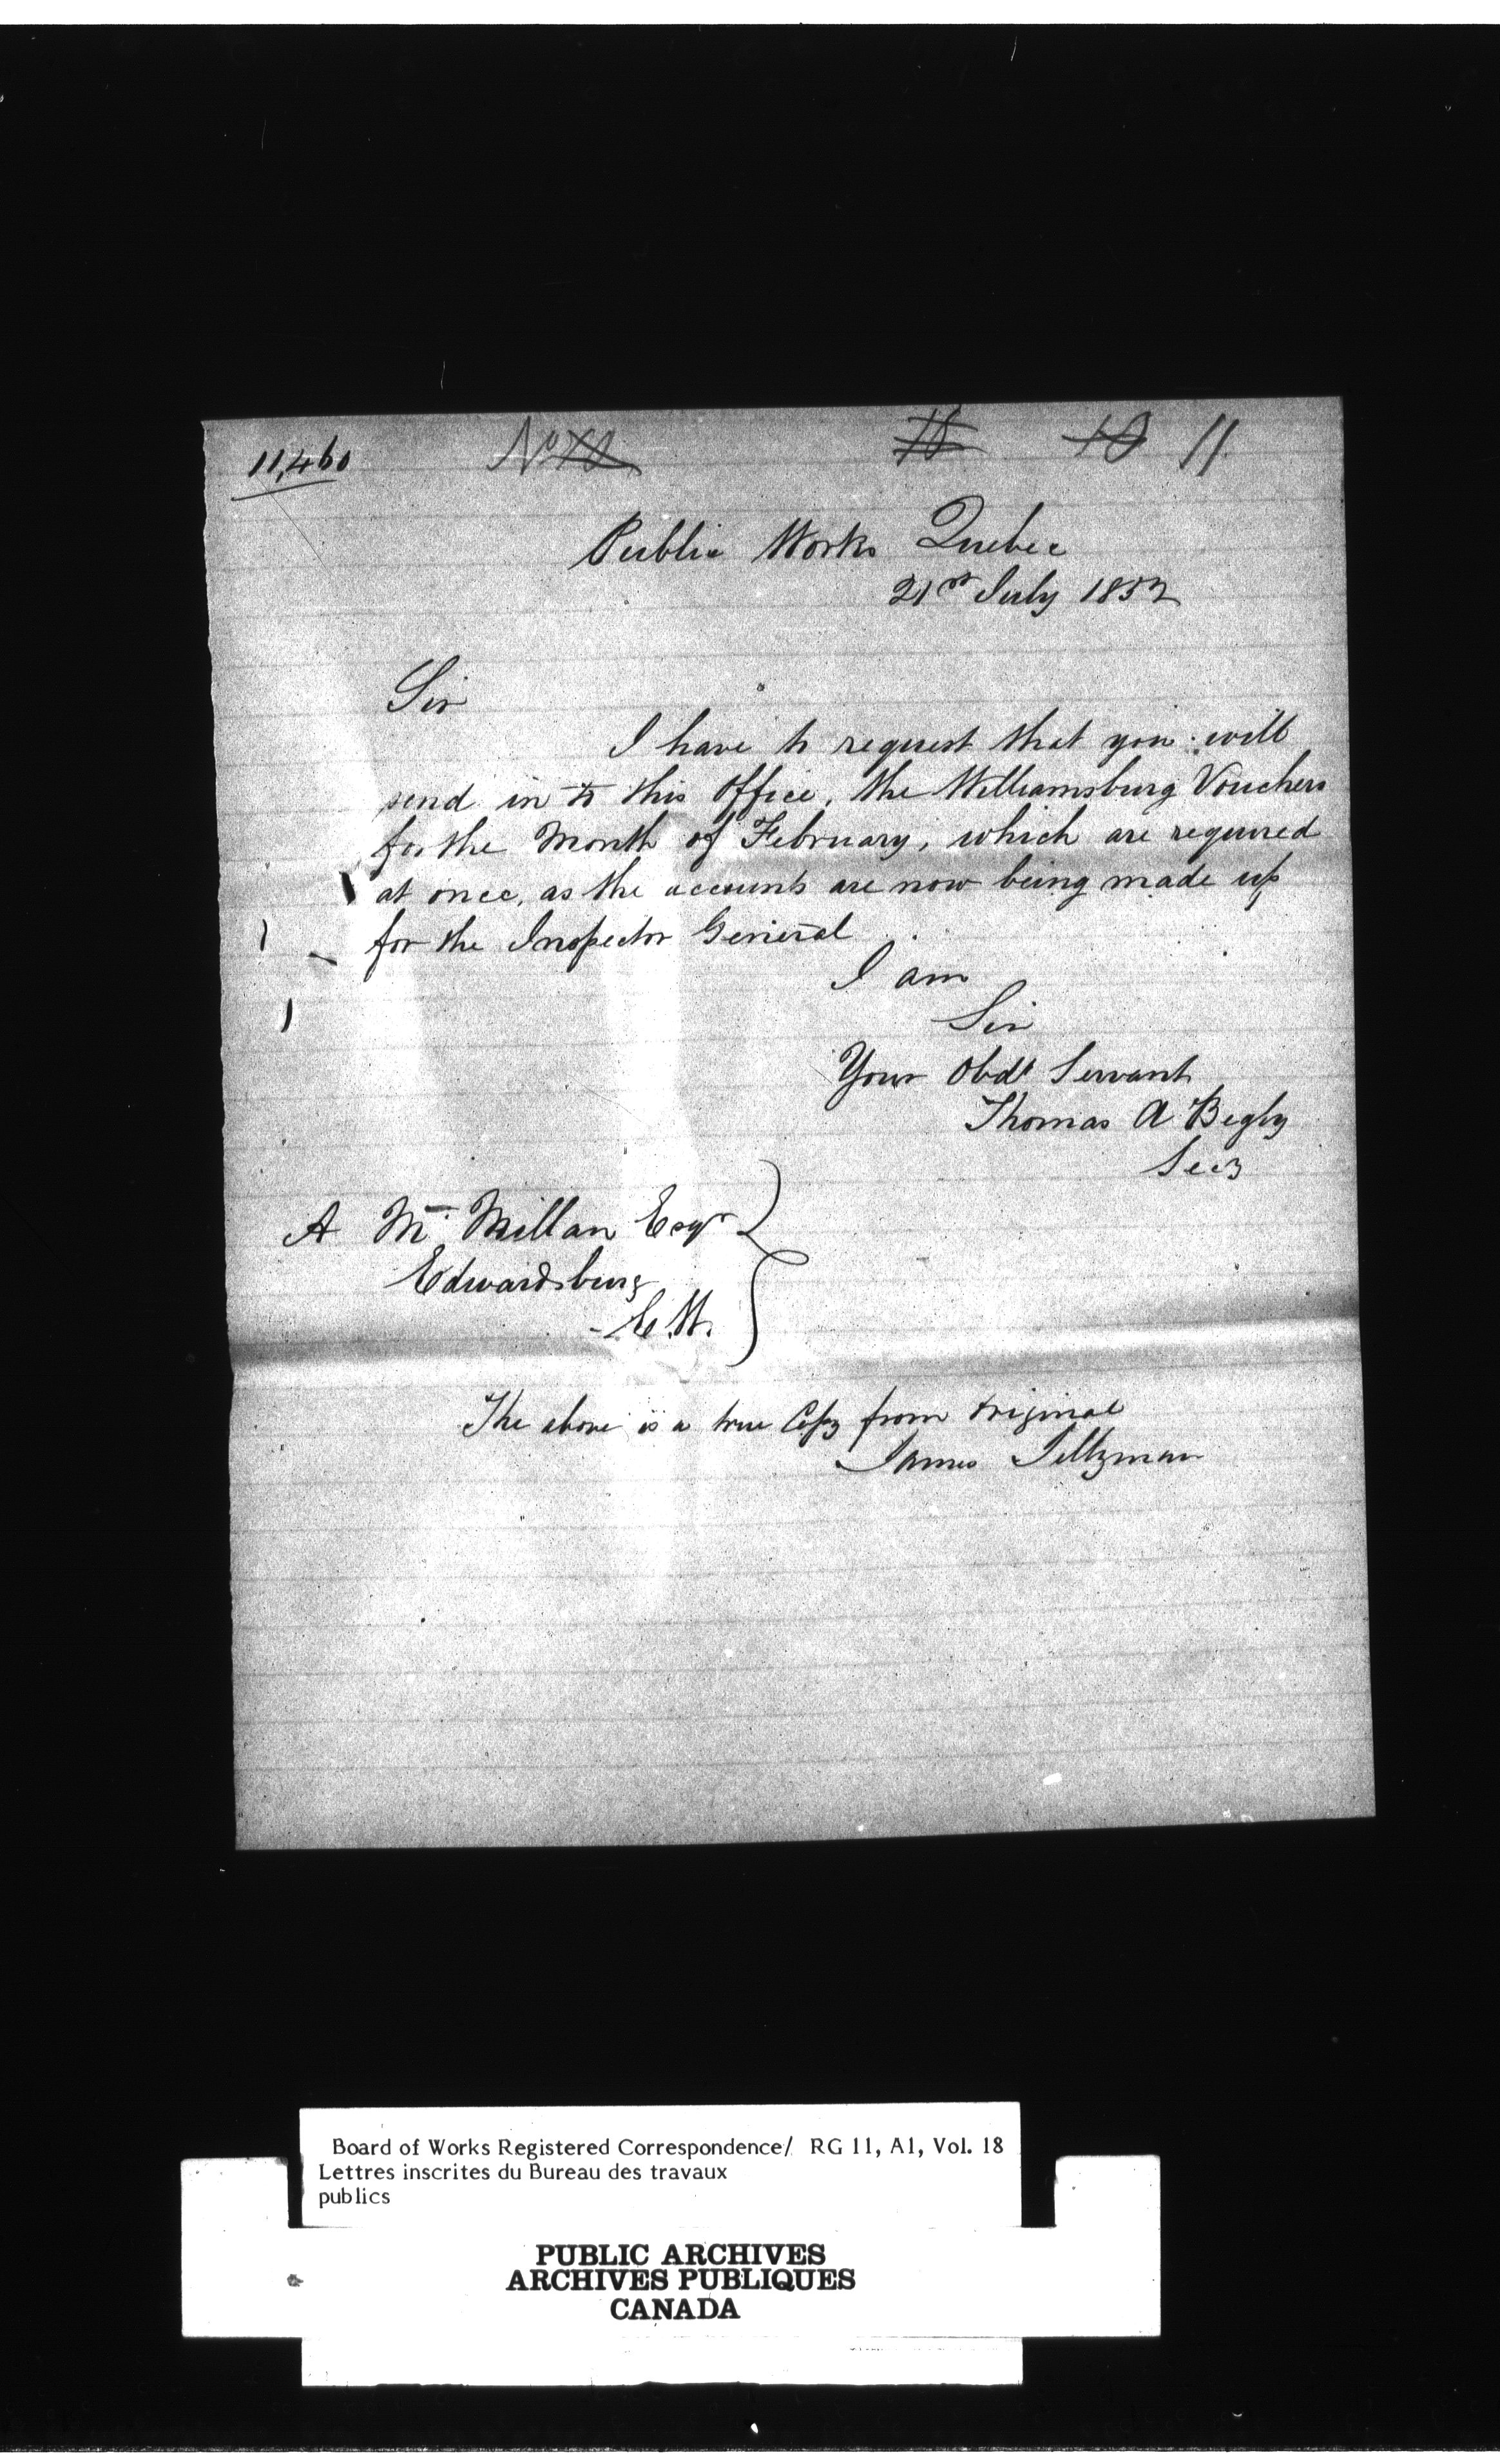 11,460 No 11
Public Works Quebec
21st July 1852
Sir
I have to request that you will
send in to this Office, the Williamsburg Vouchers
for the Month of February, which are required
at once, as the accounts are now being made up
for the Inspector General
I am
Sir
Your Obdt Servant
Thomas A Begly
Secy
A Mc Millan Esqr
Edwardsburg
C.W.
The above is a true Copy from original
James
Board of Works Registered Correspondence/ RG 11, A1, Vol. 18
Lettres inscrites du Bureau des travaux
publics
PUBLIC ARCHIVES
ARCHIVES PUBLIQUES
CANADA